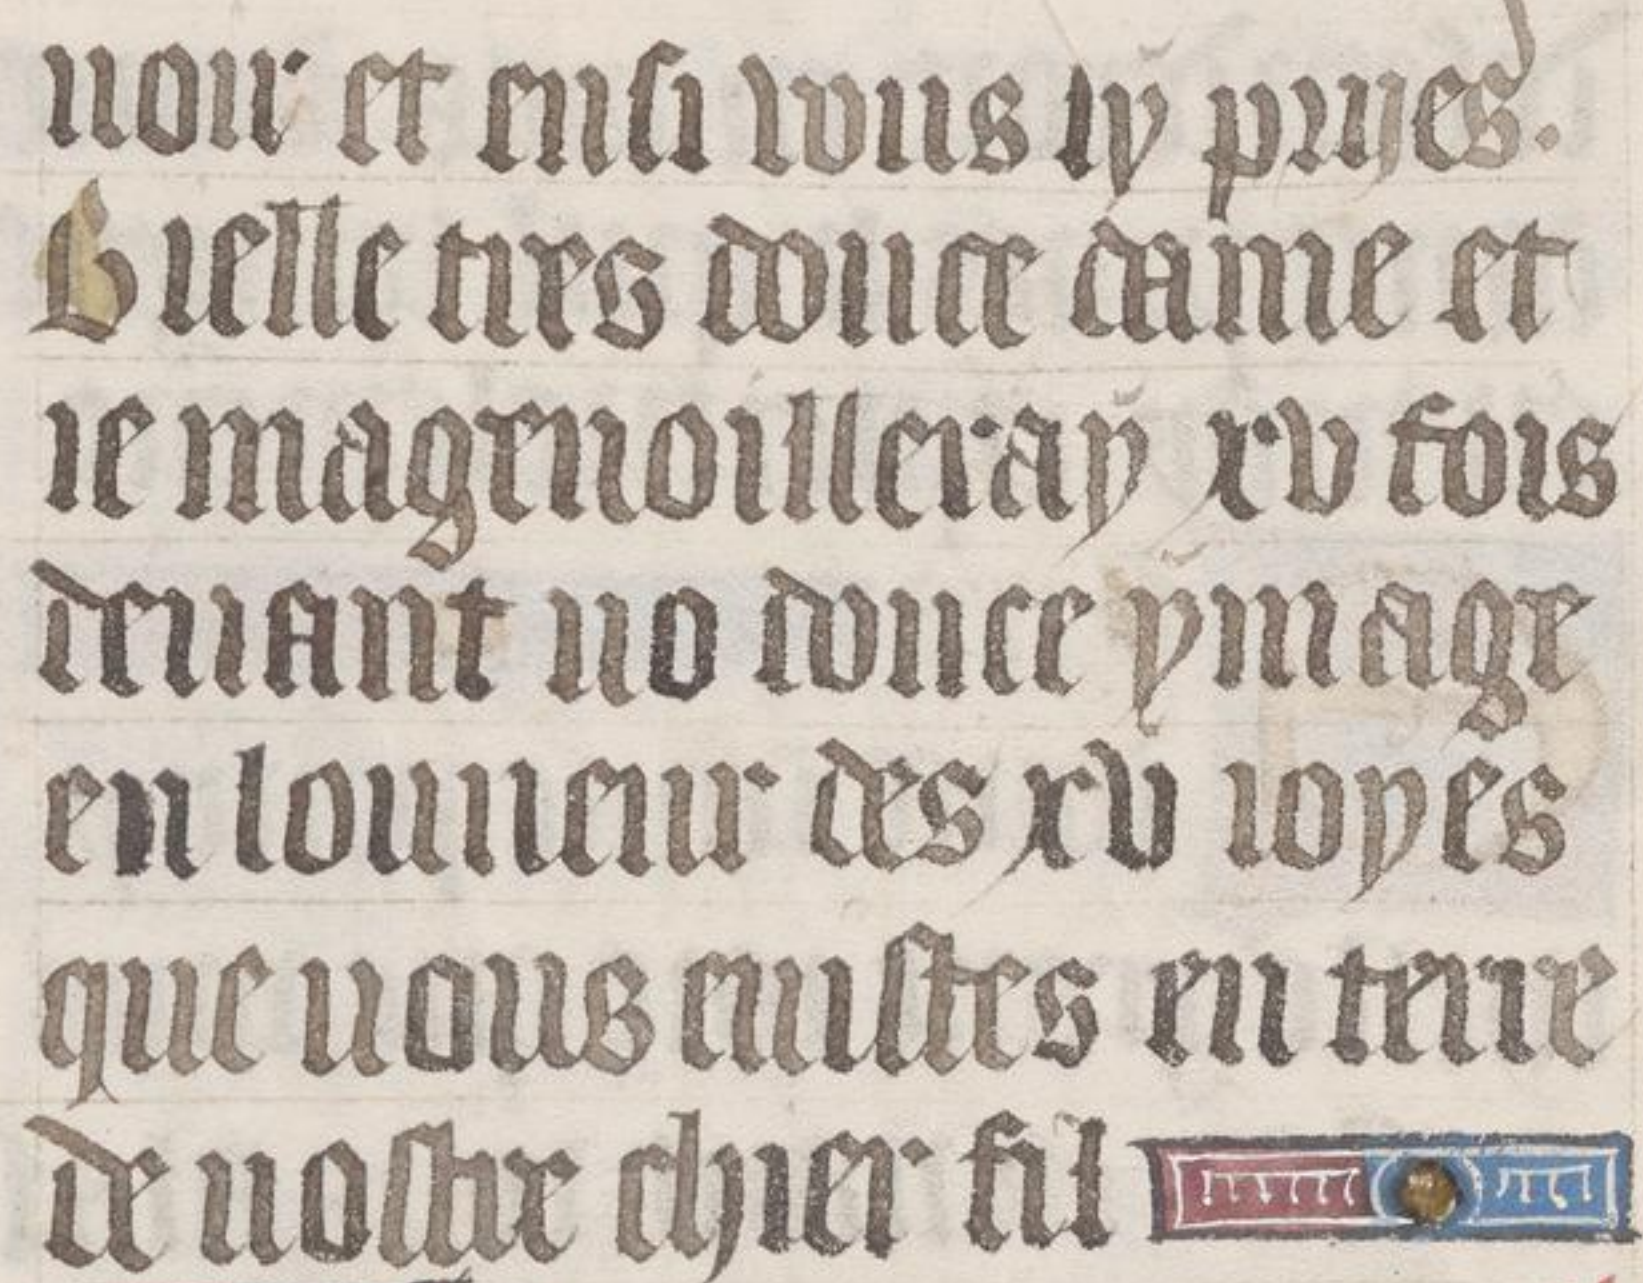 uoir et ensi wus ly pryes.
Bielle tres douce dame et
ie magenoilleray xv fois
deuant uo douce ymage
en lounneur des xv ioyes
que uous euistes en terre
de uostre chier fil